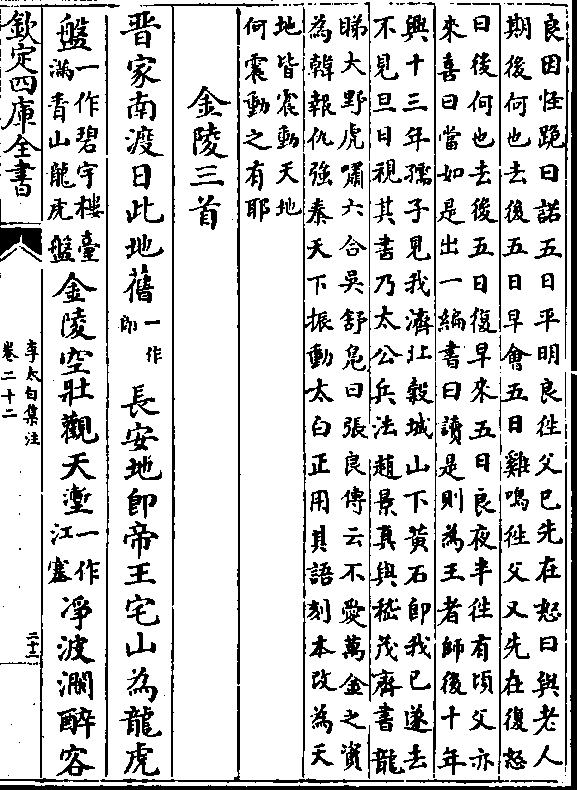 良因怪跪曰諾五日平明良徃父已先在怒曰與老人
期後何也去後五日早會五日雞鳴徃父又先在復怒
曰後何也去後五日復早來五日良夜半徃有頃父亦
來喜曰當如是出一編書曰讀是則為王者師後十年
興十三年孺子見我濟北穀城山下黄石即我已遂去
不見旦日視其書乃太公兵法趙景真與嵇茂齊書龍
睇大野虎嘯六合吳舒鳧曰張良傳云不愛萬金之資
為韓報仇強秦天下振動太白正用其語刻本改為天
地皆震動天地
何震動之有耶
金陵三首
晋家南渡日此地舊一作即長安地即帝王宅山為龍虎
盤一作碧宇樓臺滿青山龍虎盤金陵空壯觀天塹一作江塞凈波瀾醉客
欽定四庫全書
李太白集注
卷二十二
二十三